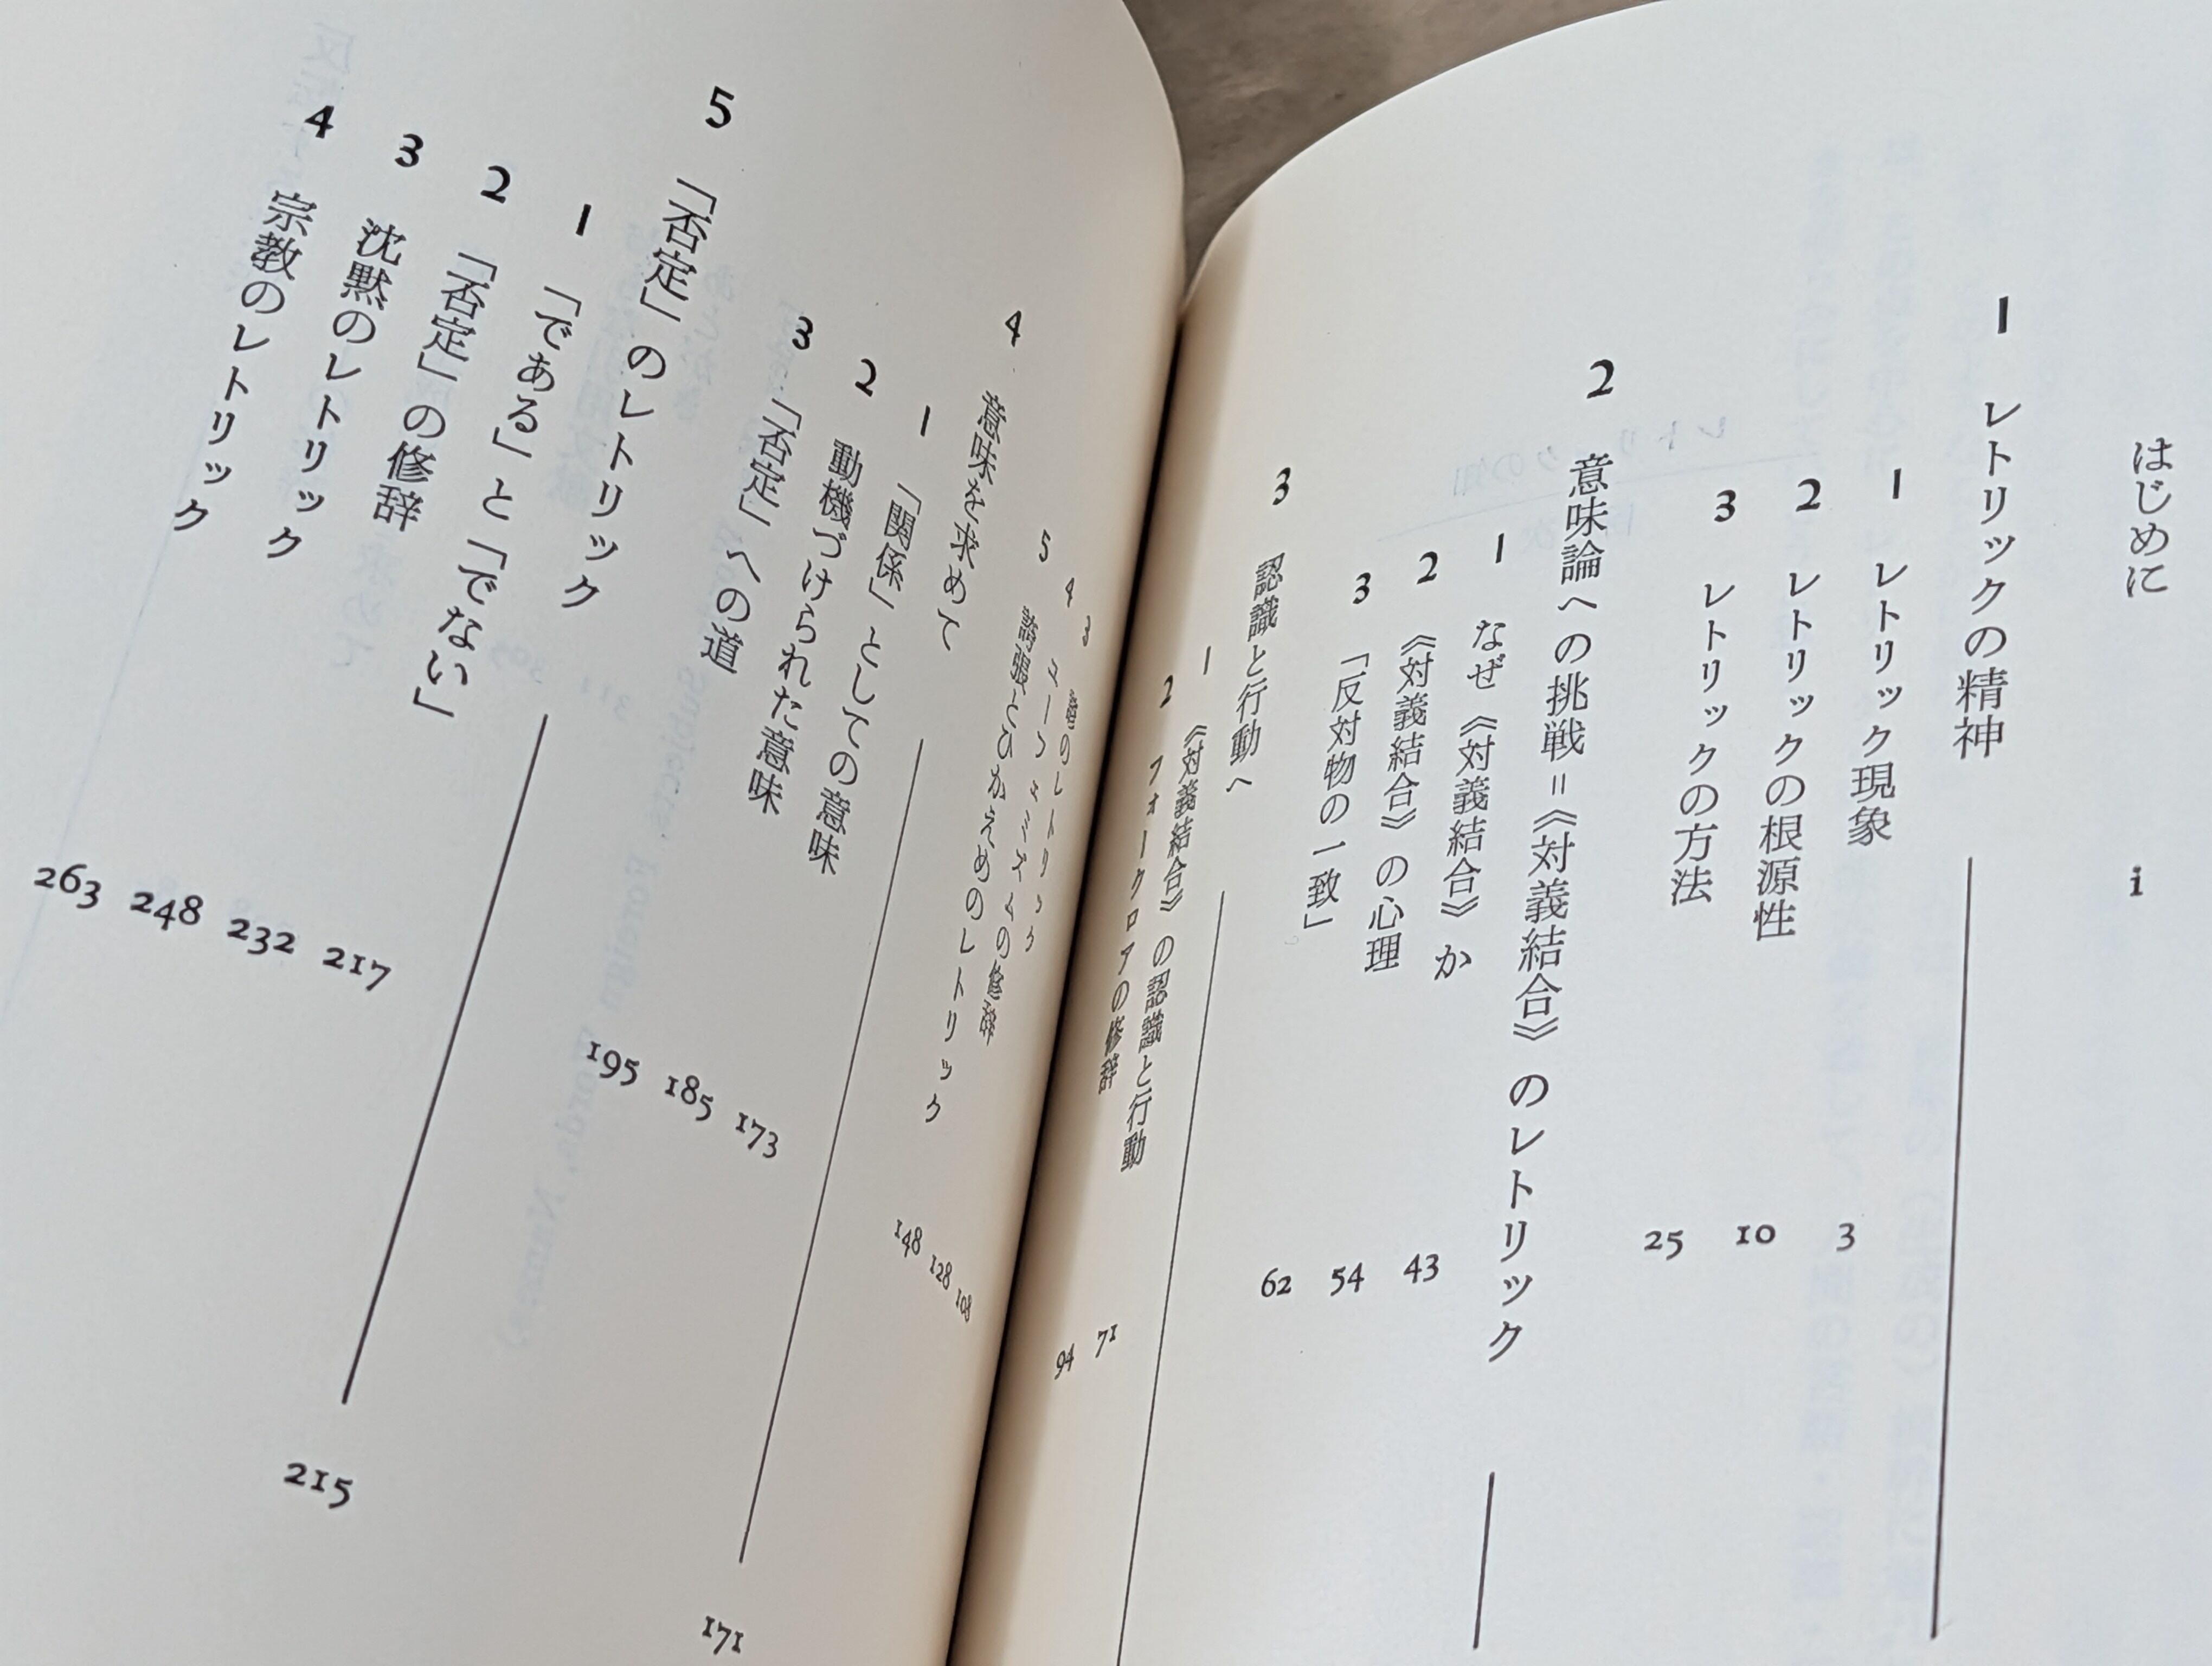 はじめに i
1 レトリックの精神
1 レトリック現象 3
2 レトリックの根源性 10
3 レトリックの方法 25
2 意味論への挑戦=《対義結合》のレトリック
1 なぜ《対義結合》か 43
2 《対義結合》の心理 54
3 「反対物の一致」 62
3 認識と行動へ
1 《対義結合》の認識と行動 71
2 フォークロアの修辞 94
3 のレトリック 108
4 ユーフェミズムの修辞 128
5 誇張とひかえめのレトリック 148
4 意味を求めて 171
1 「関係」としての意味 173
2 動機づけられた意味 185
3 「否定」への道 195
5 「否定」のレトリック 215
1 「である」と「でない」 217
2 「否定」の修辞 232
3 沈黙のレトリック 248
4 宗教のレトリック 263